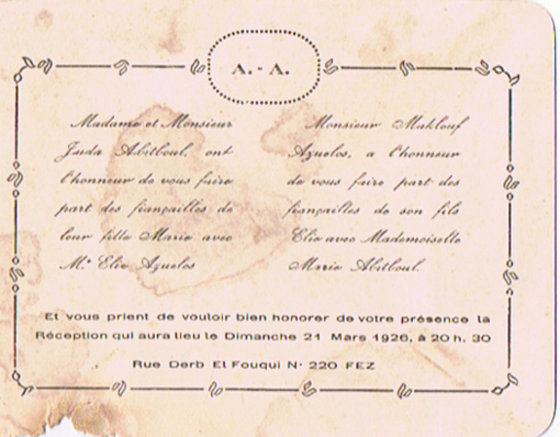 A. - A.
Madame et Monsieur
Juda Abitboul, ont
l'honneur de vous faire
part des fiançailles de
leur fille Marie avec
Mr Elie Azuelos
Monsieur Maklouf
Azuelos, a l'honneur
de vous faire part des
fiançailles de son fils
Elie avec Mademoiselle
Marie Abitboul.
Et vous prient de vouloir bien honorer de votre présence la
Réception qui aura lieu le Dimanche 21 Mars 1926, à 20 h. 30
Rue Derb El Fouqui N· 220 FEZ